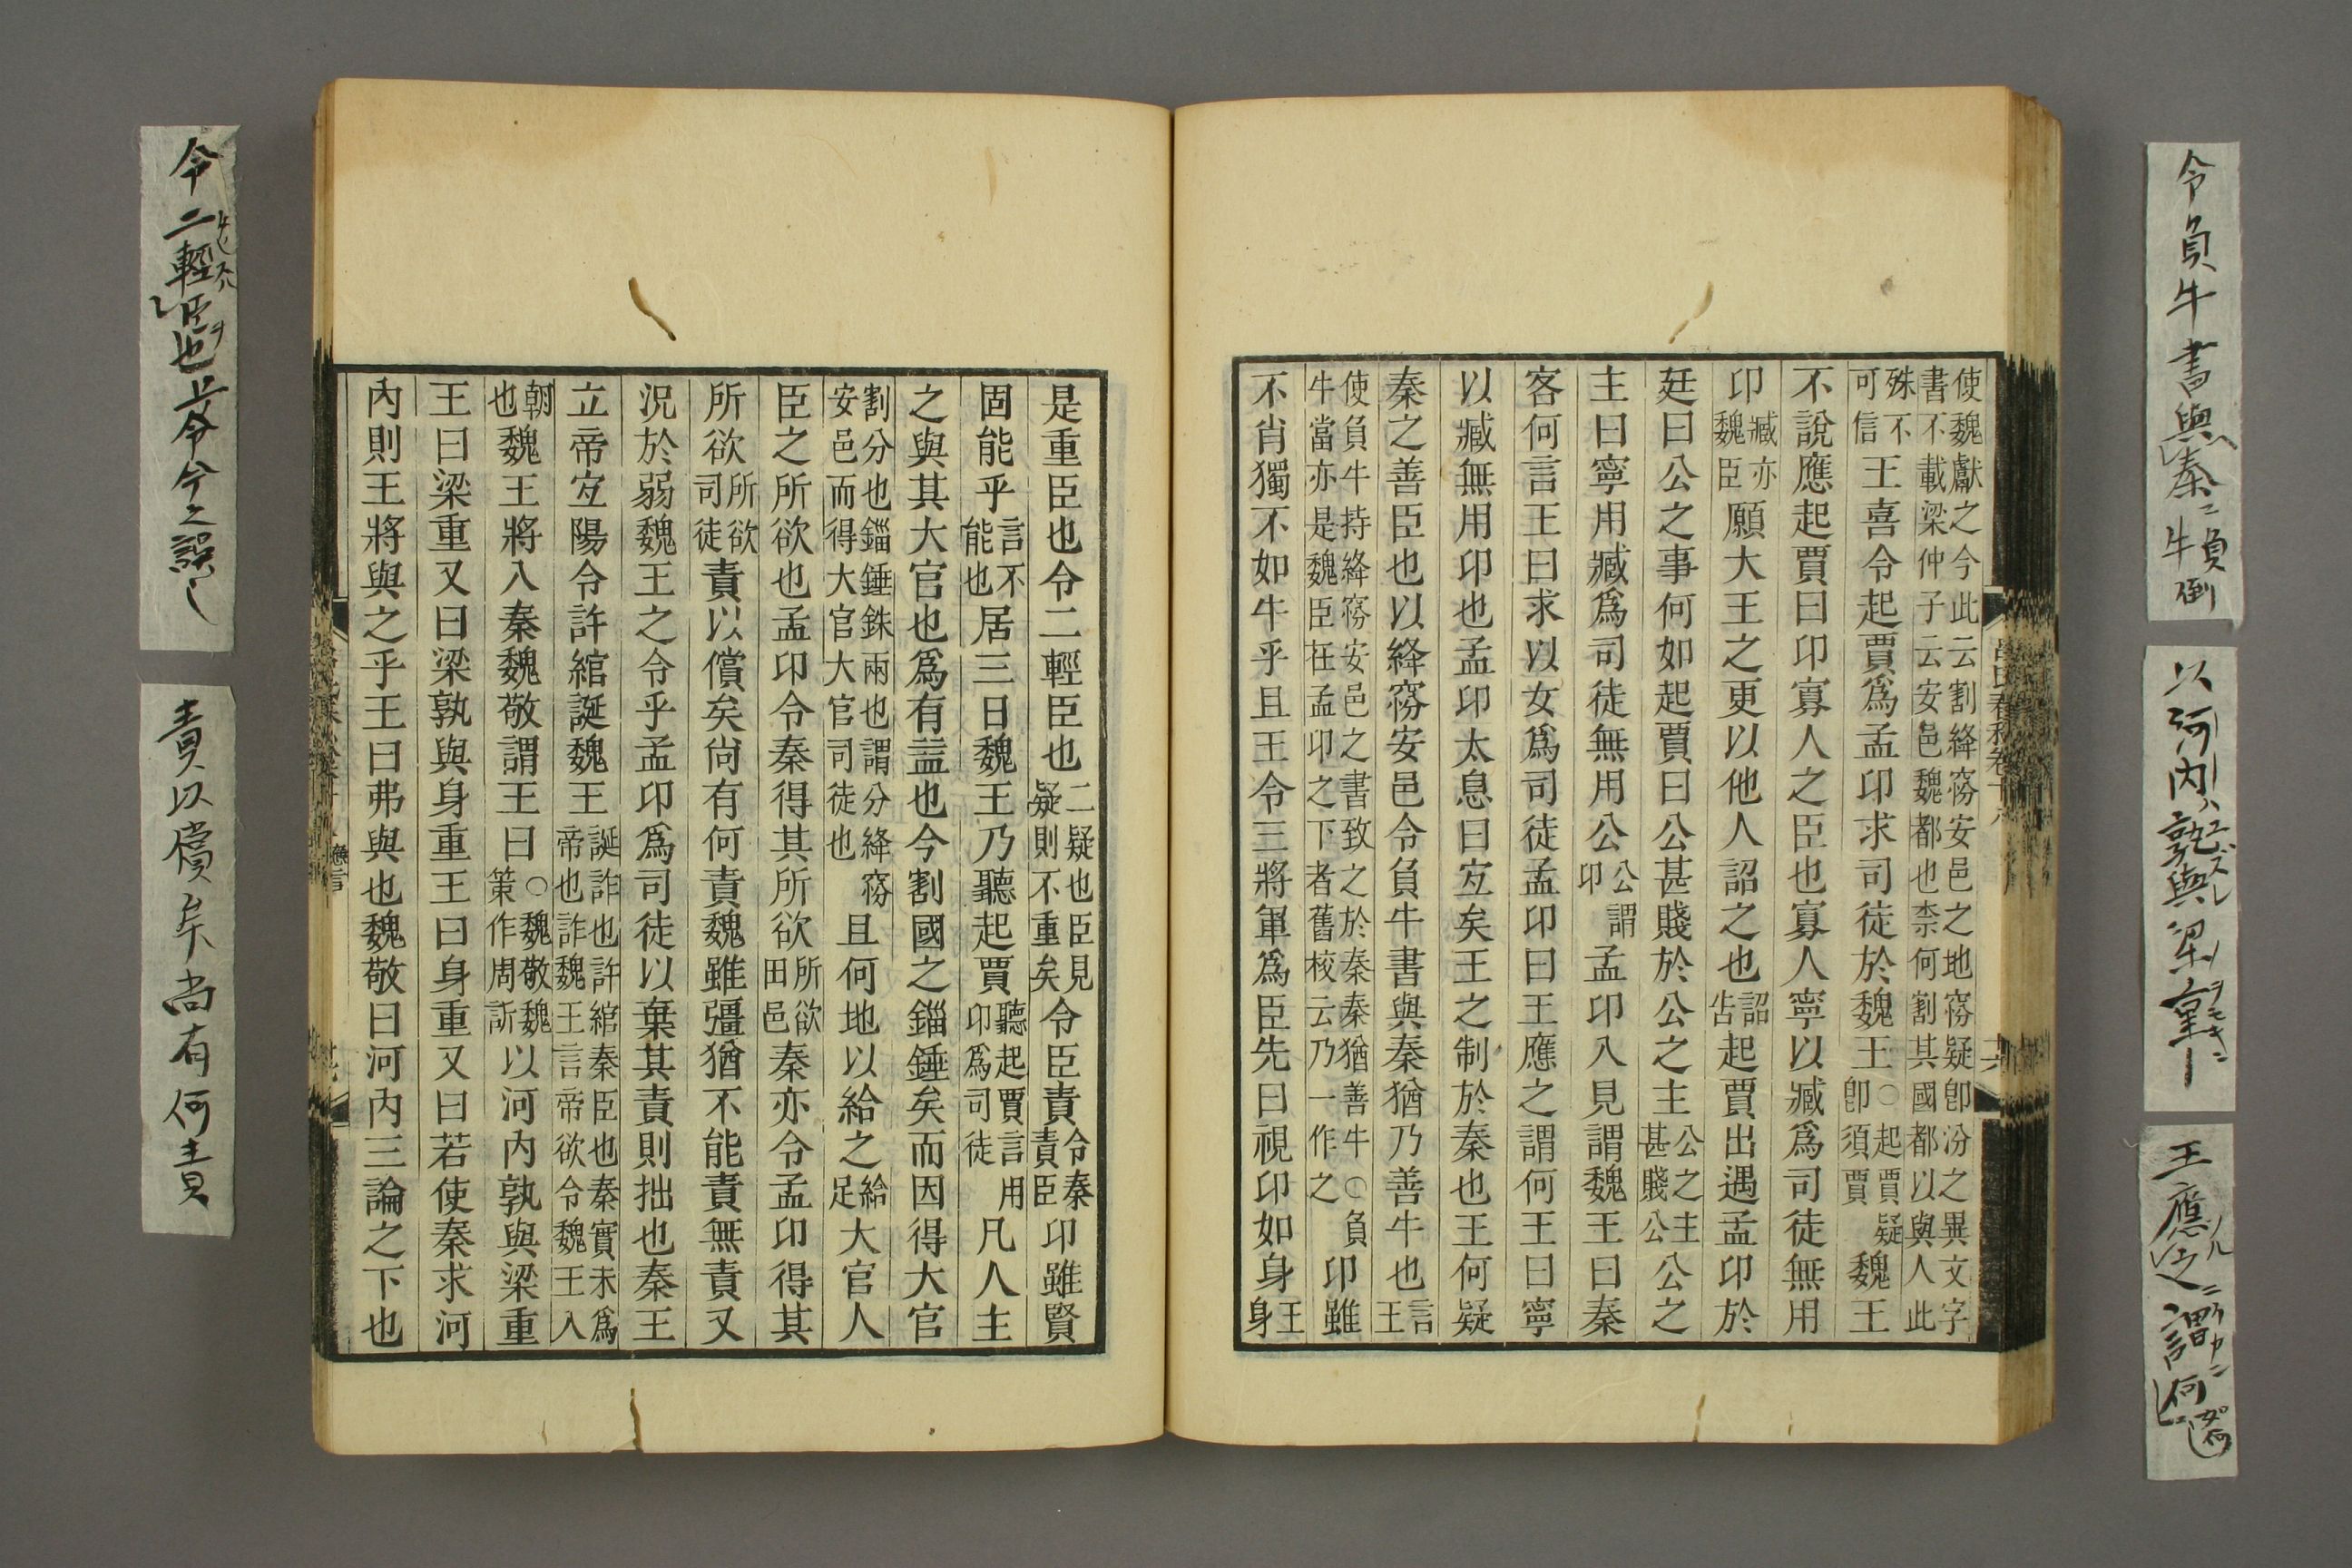 使魏獻之今此云割絳㝑安邑之地㝑疑卽汾之異文字
書不載梁仲子云安邑魏都也柰何割其國都以與人此
殊不
可信王喜令起賈爲孟卬求司徒於魏王○起賈疑
卽須賈魏王
不說應起賈曰卬寡人之臣也寡人寧以臧爲司徒無用
卬臧亦
魏臣願大王之更以他人詔之也詔
告起賈出遇孟卬於
廷曰公之事何如起賈曰公甚賤於公之主公之主
甚賤公公之
主曰寧用臧爲司徒無用公公謂
卬孟卬入見謂魏王曰秦
客何言王曰求以女爲司徒孟卬曰王應之謂何王曰寧
以臧無用卬也孟卬太息曰宐矣王之制於秦也王何疑
秦之善臣也以絳㝑安邑令負牛書與秦猶乃善牛也言
王
使負牛持絳㝑安邑之書致之於秦秦猶善牛○負
牛當亦是魏臣在孟卬之下者舊校云乃一作之卬雖
不肖獨不如牛乎且王令三將軍爲臣先曰視卬如身王
身
是重臣也令二輕臣也二疑也臣見
疑則不重矣令臣責令秦
責臣卬雖賢
固能乎言不
能也居三日魏王乃聽起賈聽起賈言用
卬爲司徒凡人主
之與其大官也爲有益也今割國之錙錘矣而因得大官
割分也錙錘銖兩也謂分絳㝑
安邑而得大官大官司徒也且何地以給之給
足大官人
臣之所欲也孟卬令秦得其所欲所欲
田邑秦亦令孟卬得其
所欲所欲
司徒責以償矣尚有何責魏雖彊猶不能責無責又
況於弱魏王之令乎孟卬爲司徒以棄其責則拙也秦王
立帝宐陽令許綰誕魏王誕詐也許綰秦臣也秦實未爲
帝也詐魏王言帝欲令魏王入
朝
也魏王將入秦魏敬謂王曰○魏敬魏
策作周訢以河內孰與梁重
王曰梁重又曰梁孰與身重王曰身重又曰若使秦求河
內則王將與之乎王曰弗與也魏敬曰河內三論之下也
令負牛書與秦ニ 負牛倒
以河內ハ孰與梁重
王應之謂何
令二輕臣也
責以償矣尚有何責